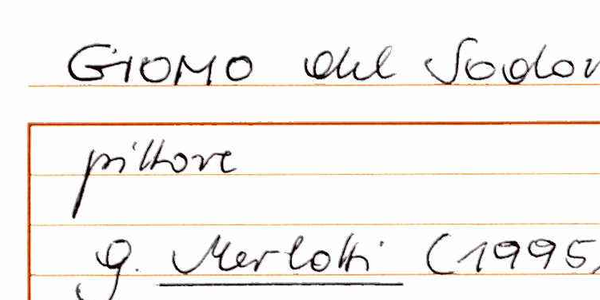 GIOMO del Sodo
pittore
g. Merlotti (1995)